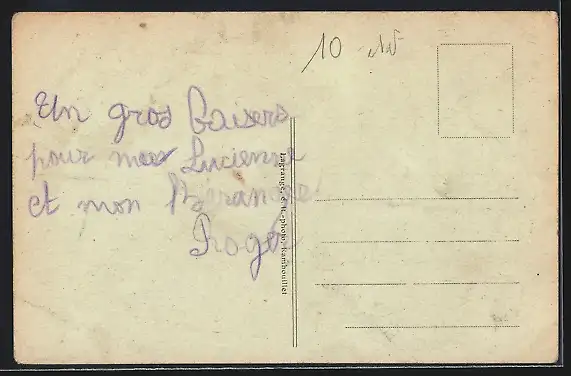 10
Un gros Baisers
pour mes Lucienne
et mon
Roger
Lagrange, édit.-photo, Rambouillet